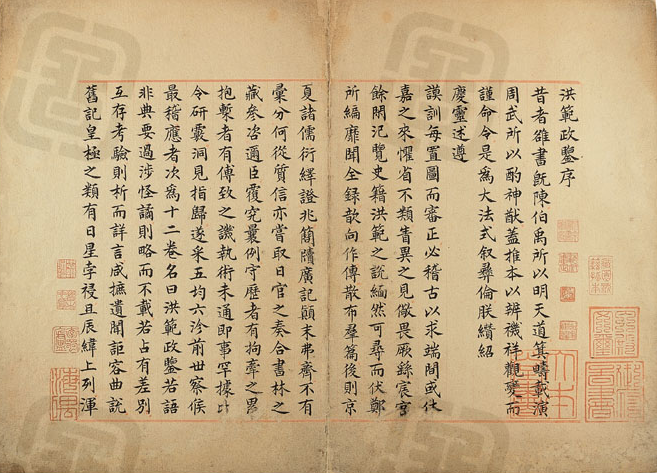 洪範政鑒序
昔者雒書旣陳伯禹所以明天道箕疇載演
周武所以酌神猷蓋推本以辨禨祥觀變而
謹命令是為大法式叙彝倫朕纘紹
慶靈述遵
謨訓每置圖而審正必稽古以求端閒或休
嘉之來懼省不類眚異之見儆畏厥繇宸宫
餘閒氾覽史籍洪範之說緬然可尋而伏鄭
所編靡聞全録歆向作傳散布羣篇後則京
夏諸儒衍繹證兆簡牘廣記顛末弗齊不有
彙分何從質信亦嘗取日官之奏合書林之
藏參咨邇臣覆究曩例守歷者有拘牽之累
抱槧者有傅致之譏執術未通即事罕據比
令研覈洞見指歸遂采五均六沴前世察候
最稽應者次為十二卷名曰洪範政鑒若語
非典要過涉怪譎則略而不載若占有差別
互存考驗則析而詳言咸摭遺聞詎容曲說
舊記皇極之類有日星孛祲且辰緯上列渾